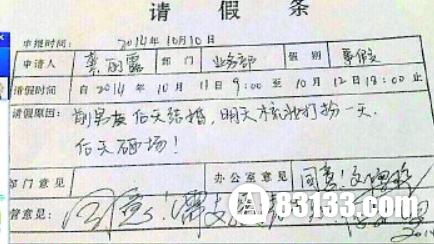 请假条
申报时间: 2014年10月10日
申请人 龚丽露 部门 业务部 假别 事假
请假时间: 自2014年10月11日9:00至10月12日18:00止
请假原因: 前男友后天结婚，明天梳妆打扮一天，
后天砸场！
部门意见 办公室意见 同意！
管意见: 同意！需
83133.com